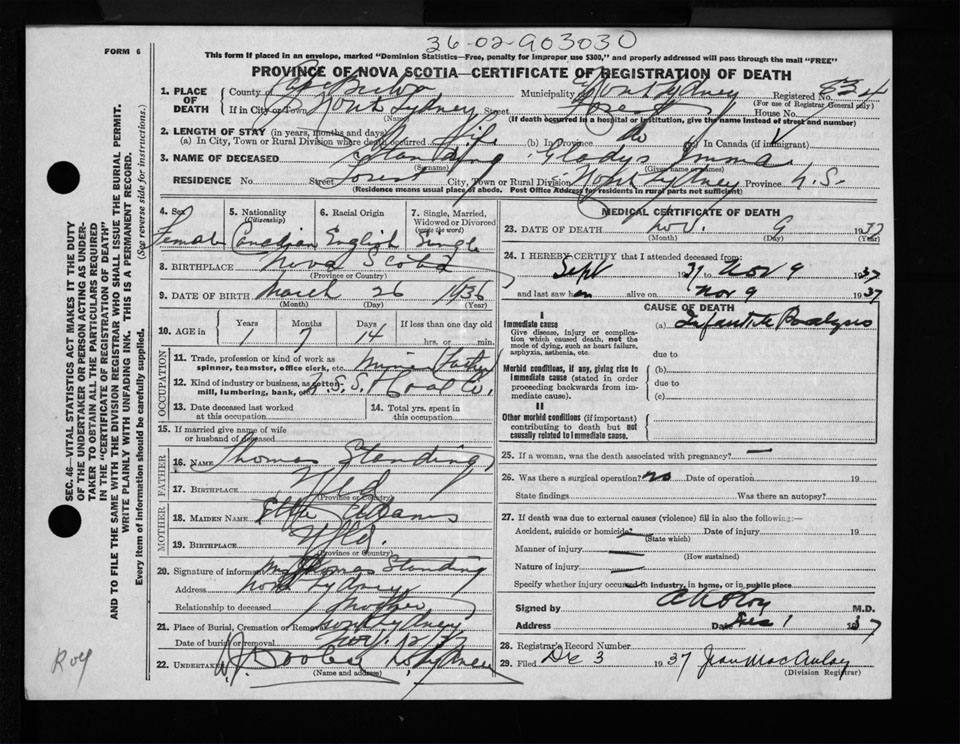 36-02-903030
FORM 6
This form if placed in an envelope, marked "Dominion Statistics—Free, penalty for improper use $300," and properly addressed will pass through the mail "FREE"
PROVINCE OF NOVA SCOTIA—CERTIFICATE OF REGISTRATION OF DEATH
1. PLACE OF DEATH
County of Cape Breton Municipality North Sydney Registered No. 534
(For use of Registrar General only)
If in City or Town North Sydney Street House No.
(Name)
(If death occurred in a hospital or institution, give the name instead of street and number)
2. LENGTH OF STAY (in years, months and days)
(a) In City, Town or Rural Division where death occurred life (b) In Province do (c) In Canada (if immigrant)
3. NAME OF DECEASED Standing Gladys Emma
(Surname) (Given name or names)
RESIDENCE No. Street City, Town or Rural Division North Sydney Province N.S.
(Residence means usual place of abode. Post Office Address for residents in rural parts not sufficient)
4. Sex Female
5. Nationality (Citizenship) Canadian
6. Racial Origin English
7. Single, Married, Widowed or Divorced (write the word) Single
8. BIRTHPLACE Nova Scotia
(Province or Country)
9. DATE OF BIRTH March 26 1936
(Month) (Day) (Year)
10. AGE in Years Months Days If less than one day old
1 7 14 hrs. or min.
OCCUPATION
11. Trade, profession or kind of work as spinner, teamster, office clerk, etc. miner (Father)
12. Kind of industry or business, as cotton mill, lumbering, bank, etc. N.S.S. & Coal Co.
13. Date deceased last worked at this occupation
14. Total yrs. spent in this occupation
15. If married give name of wife or husband of deceased
FATHER
16. NAME Thomas Standing
17. BIRTHPLACE Nfld
(Province or Country)
MOTHER
18. MAIDEN NAME
19. BIRTHPLACE Nfld.
(Province or Country)
20. Signature of informant Mrs Thomas Standing
Address North Sydney
Relationship to deceased Mother
21. Place of Burial, Cremation or Removal North Sydney
Date of burial or removal Nov.
22. Undertaker N Sydney
(Name and address)
MEDICAL CERTIFICATE OF DEATH
23. DATE OF DEATH Nov. 9 1937
(Month) (Day) (Year)
24. I HEREBY CERTIFY that I attended deceased from:
Sept 1937 to Nov 9 1937
and last saw h alive on Nov 9 1937
CAUSE OF DEATH
I
Immediate cause (a) Infantile Paralysis
Give disease, injury or complication which caused death, not the mode of dying, such as heart failure, asphyxia, asthenia, etc.
due to
Morbid conditions, if any, giving rise to immediate cause (stated in order proceeding backwards from immediate cause).
(b)
due to
(c)
II
Other morbid conditions (if important) contributing to death but not causally related to immediate cause.
25. If a woman, was the death associated with pregnancy? —
26. Was there a surgical operation? no Date of operation 19
State findings Was there an autopsy?
27. If death was due to external causes (violence) fill in also the following:—
Accident, suicide or homicide — Date of injury 19
(State which)
Manner of injury —
(How sustained)
Nature of injury —
Specify whether injury occured in industry, in home, or in public place
Signed by M.D.
Address Date Dec 1 1937
28. Registrar's Record Number
29. Filed Dec 3 1937 Jean MacAulay
(Division Registrar)
SEC. 46—VITAL STATISTICS ACT MAKES IT THE DUTY
OF THE UNDERTAKER OR PERSON ACTING AS UNDER-
TAKER TO OBTAIN ALL THE PARTICULARS REQUIRED
IN THE "CERTIFICATE OF REGISTRATION OF DEATH"
AND TO FILE THE SAME WITH THE DIVISION REGISTRAR WHO SHALL ISSUE THE BURIAL PERMIT.
WRITE PLAINLY WITH UNFADING INK. THIS IS A PERMANENT RECORD.
Every item of information should be carefully supplied. (See reverse side for instructions.)
Roy